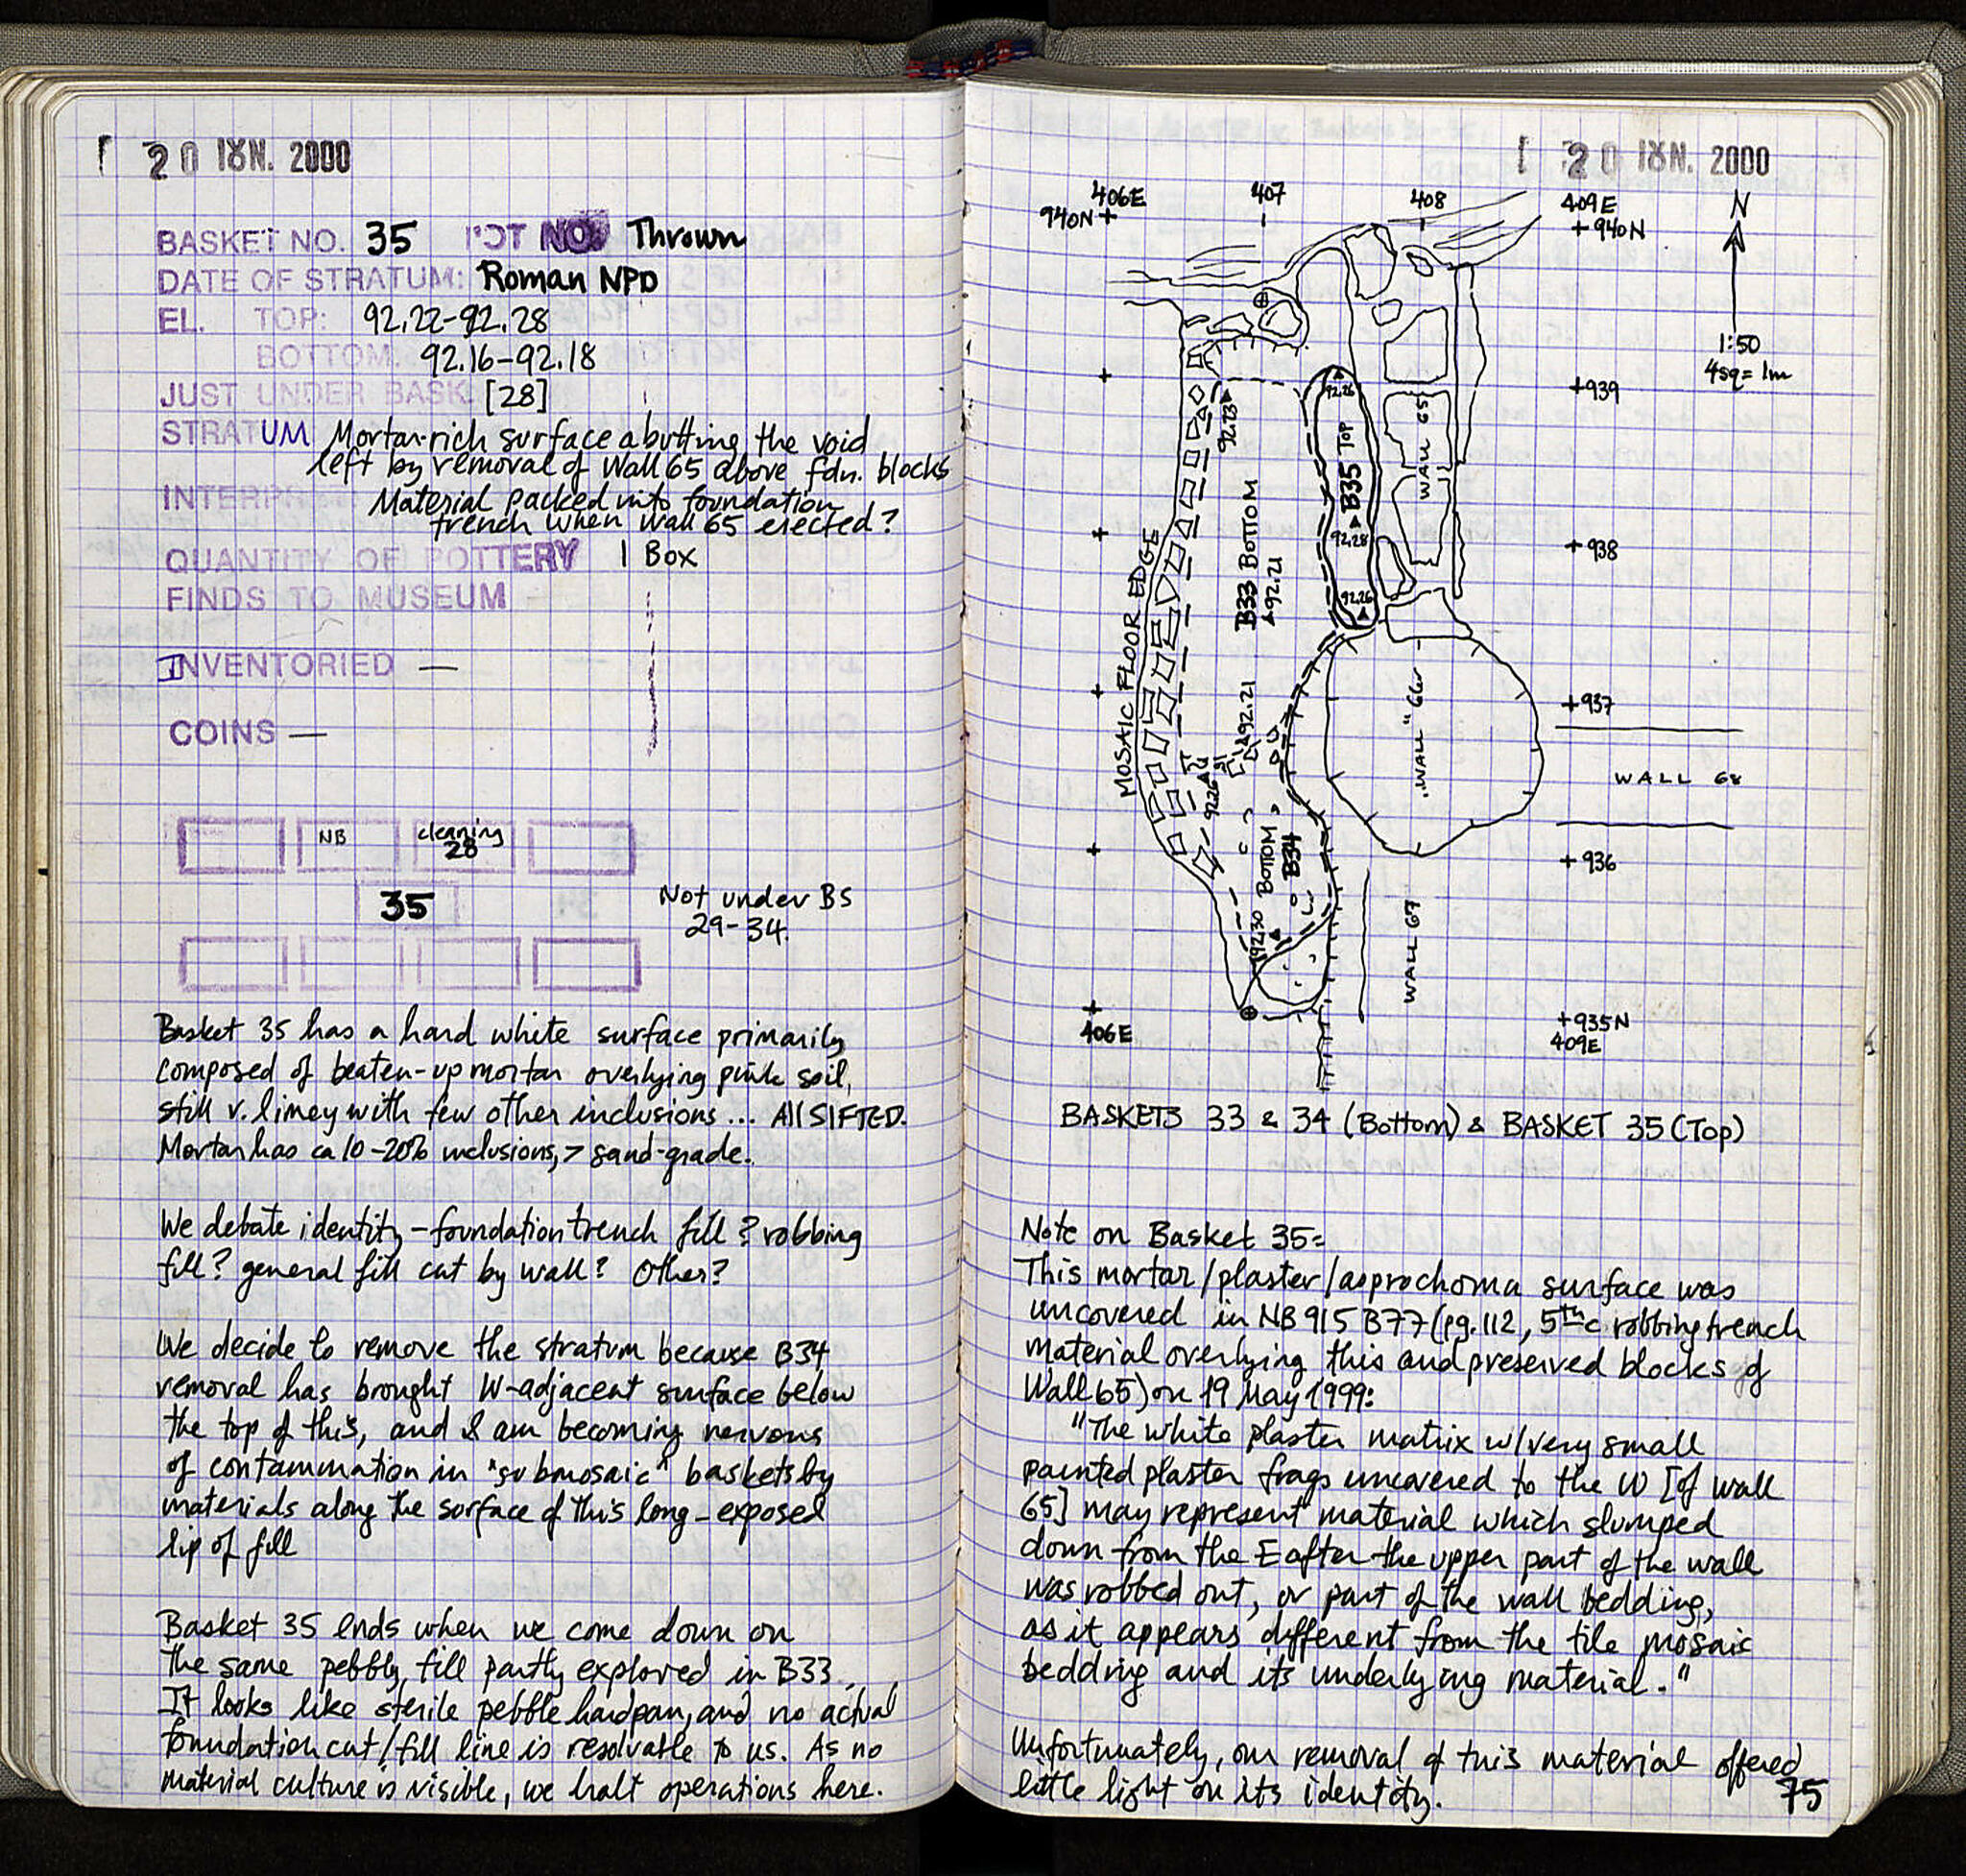 20 ΙΟΥΝ. 2000
BASKET NO. 35 LOT NO. Thrown
DATE OF STRATUM: Roman NPD
EL. TOP: 92.22-92.28
BOTTOM: 92.16-92.18
JUST UNDER BASK. [28]
STRATUM Mortar-rich surface abutting the void
left by removal of Wall 65 above fdn. blocks
Material packed into foundation
trench when wall 65 erected?
QUANTITY OF POTTERY 1 Box
FINDS TO MUSEUM
INVENTORIED —
COINS —
NB cleaning
28
35
Not under BS
29-34.
Basket 35 has a hard white surface primarily
composed of beaten-up mortar overlying pink soil,
still v. limey with few other inclusions... All SIFTED.
Mortar has ca 10-20% inclusions, > sand-grade.
We debate identity - foundation trench fill? robbing
fill? general fill cut by wall? Other?
We decide to remove the stratum because B34
removal has brought W-adjacent surface below
the top of this, and I am becoming nervous
of contamination in "submosaic" baskets by
materials along the surface of this long-exposed
lip of fill
Basket 35 ends when we come down on
the same pebbly fill partly explored in B33.
It looks like sterile pebble hardpan, and no actual
foundation cut/fill line is resolvable to us. As no
material culture is visible, we halt operations here.
20 ΙΟΥΝ. 2000
406E 407 408 409E
940N +940N
N
1:50
4sq = 1m
+939
92.26
92.23
B35 TOP
WALL 65
92.28
+938
B33 BOTTOM
92.21
92.26
MOSAIC FLOOR EDGE
+937
92.21
"WALL"
WALL 68
92.26
+936
BOTTOM B34
92.30
WALL 69
406E
+935N
409E
BASKETS 33 & 34 (Bottom) & BASKET 35 (Top)
Note on Basket 35=
This mortar/plaster/asprochoma surface was
uncovered in NB 915 B77 (pg. 112, 5th c. robbing trench
material overlying this and preserved blocks of
Wall 65) on 19 May 1999:
"The white plaster matrix w/very small
painted plaster frags uncovered to the W [of wall
65] may represent material which slumped
down from the E after the upper part of the wall
was robbed out, or part of the wall bedding,
as it appears different from the tile mosaic
bedding and its underlying material."
Unfortunately, our removal of this material offered
little light on its identity.
75